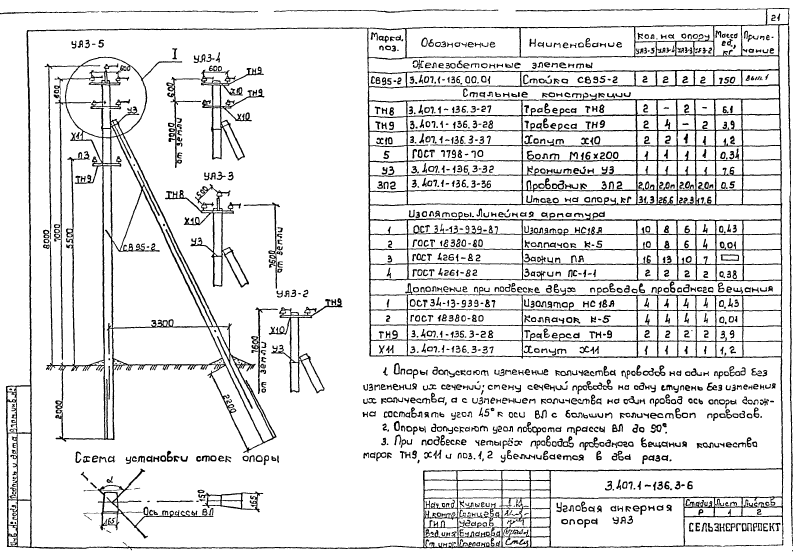 21
УА3-5
I
600
600
У3
Х11
П3
ТН9
8000
7000
5500
СВ95-2
3300
2000
2200
УА3-4
600
ТН9
Х10
ТН9
Х10
600
7000
от земли
УА3-3
1500
ТН8
Х10
У3
7600
от земли
УА3-2
ТН9
Х10
У3
7600
от земли
Схема установки стоек опоры
α
Ось трассы ВЛ
165
150
165
Марка, поз. Обозначение Наименование Кол. на опору Масса ед., кг Приме-чание
УА3-5 УА3-4 УА3-3 УА3-2
Железобетонные элементы
СВ95-2 3.407.1-136.00.01 Стойка СВ95-2 2 2 2 2 750 вып.1
Стальные конструкции
ТН8 3.407.1-136.3-27 Траверса ТН8 2 - 2 - 6,1
ТН9 3.407.1-136.3-28 Траверса ТН9 2 4 - 2 3,9
Х10 3.407.1-136.3-37 Хомут Х10 2 2 1 1 1,2
5 ГОСТ 7798-70 Болт М16х200 1 1 1 1 0,34
У3 3.407.1-136.3-32 Кронштейн У3 1 1 1 1 7,6
ЗП2 3.407.1-136.3-36 Проводник ЗП2 2,0м 2,0м 2,0м 2,0м 0.5
Итого на опору, кг 31,3 26,6 22,3 17,6
Изоляторы. Линейная арматура
1 ОСТ 34-13-939-87 Изолятор НС18А 10 8 6 4 0,43
2 ГОСТ 18380-80 Колпачок К-5 10 8 6 4 0,01
3 ГОСТ 4261-82 Зажим ПА 16 13 10 7
4 ГОСТ 4261-82 Зажим ПС-1-1 2 2 2 2 0,38
Дополнение при подвеске двух проводов проводного вещания
1 ОСТ 34-13-939-87 Изолятор НС18А 4 4 4 4 0,43
2 ГОСТ 18380-80 Колпачок К-5 4 4 4 4 0,01
ТН9 3.407.1-136.3-28 Траверса ТН-9 2 2 2 2 3,9
Х11 3.407.1-136.3-37 Хомут Х11 1 1 1 1 1,2
1. Опоры допускают изменение количества проводов на один провод без
изменения их сечений; смену сечений проводов на одну ступень без изменения
их количества, а с изменением количества на один провод ось опоры долж-
на составлять угол 45° к оси ВЛ с большим количеством проводов.
2. Опоры допускают угол поворота трассы ВЛ до 90°.
3. При подвеске четырёх проводов проводного вещания количество
марок ТН9, Х11 и поз. 1, 2 увеличивается в два раза.
3.407.1-136.3-6
Нач.отд. Кулыгин
Н.контр. Солнцева
ГИП Ударов
Вед.инж. Буланова
Ст.инж. Степанова
Угловая анкерная
опора УА3
Стадия Лист Листов
Р 1 2
СЕЛЬЭНЕРГОПРОЕКТ
Инв.№подл. Подпись и дата Взам.инв.№